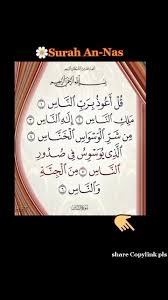 Surah An-Nas
بِسْمِ اللَّهِ الرَّحْمَٰنِ الرَّحِيمِ
قُلْ أَعُوذُ بِرَبِّ النَّاسِ ١
مَلِكِ النَّاسِ ٢ إِلَٰهِ النَّاسِ ٣
مِن شَرِّ الْوَسْوَاسِ الْخَنَّاسِ ٤
الَّذِي يُوَسْوِسُ فِي صُدُورِ
النَّاسِ ٥ مِنَ الْجِنَّةِ
وَالنَّاسِ ٦
share Copylink pls